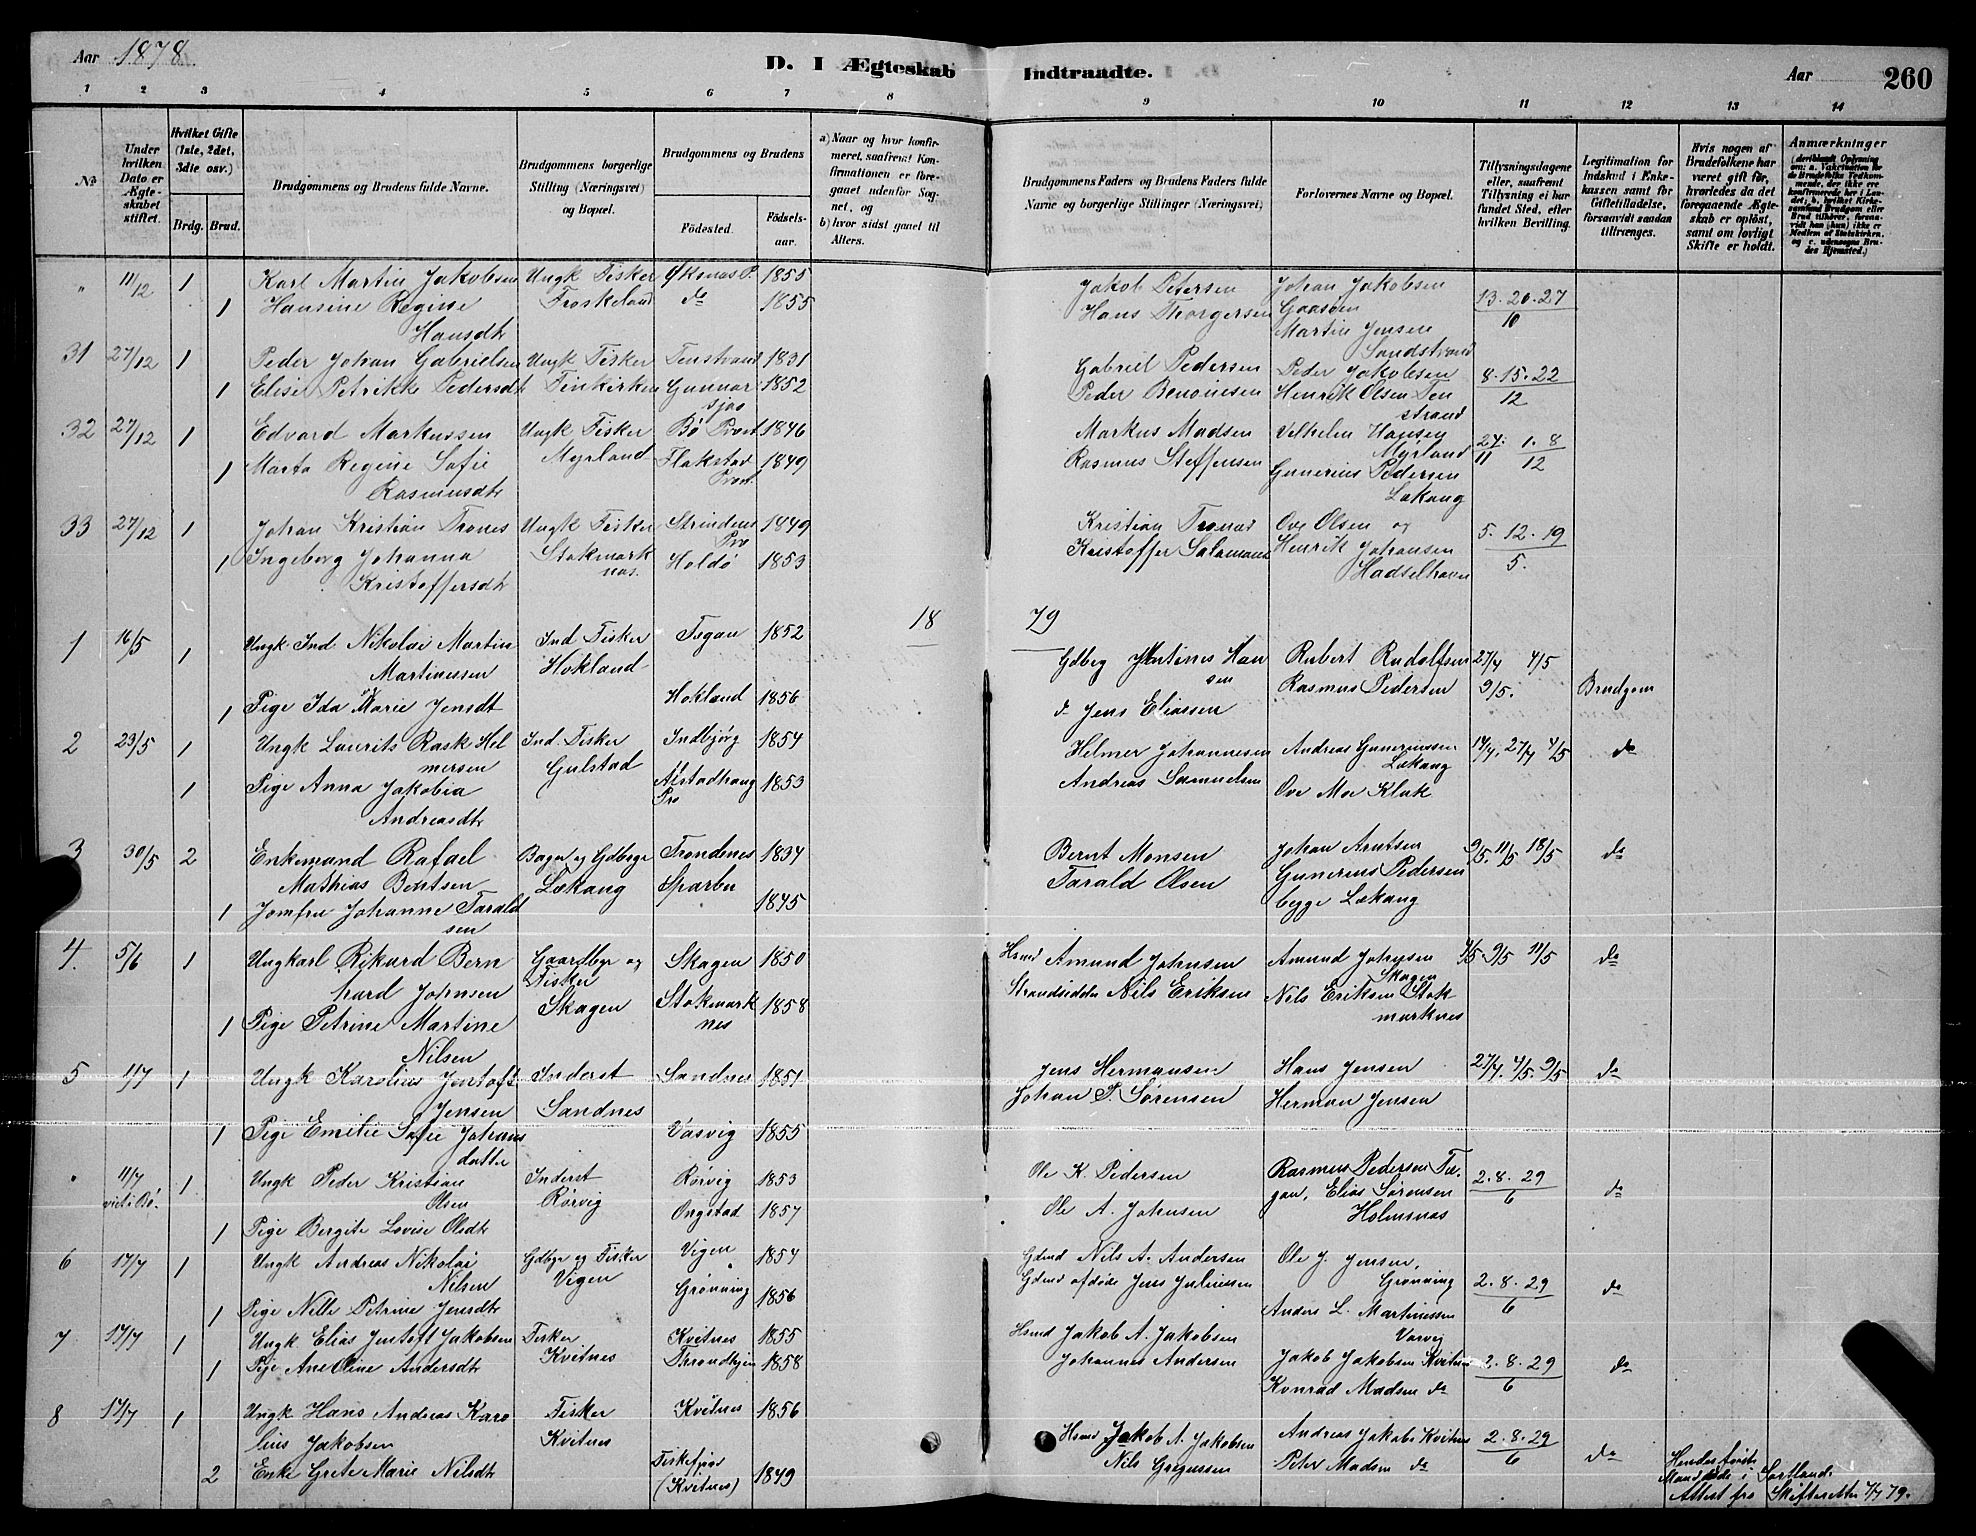 Aar 1878.
D. I Ægteskab Indtraadte.
Aar 260
1 2 3 4 5 6 7 8 9 10 11 12 13 14
No
Under hvilken Dato er Ægteskabet stiftet.
Hvilket Gifte (1ste, 2det, 3die osv.)
Brdg. Brud.
Brudgommens og Brudens fulde Navne.
Brudgommens borgerlige Stilling (Næringsvei) og Bopæl.
Brudgommens og Brudens
Fødested.
Fødselsaar.
a) Naar og hvor konfirmeret, saafremt Konfirmationen er foregaaet udenfor Sognet, og
b) hvor sidst gaaet til Alters.
Brudgommens Faders og Brudens Faders fulde Navne og borgerlige Stillinger (Næringsvei)
Forlovernes Navne og Bopæl.
Tillysningsdagene eller, saafremt Tillysning ei har fundet Sted, efter hvilken Bevilling.
Legitimation for Indskud i Enkekassen samt for Giftetilladelse, forsaavidt saadan tiltrænges.
Hvis nogen af Brudefolkene har været gift før, hvorledes da det foregaaende Ægteskab er opløst, samt om lovligt Skifte er holdt.
Anmærkninger
" 11/12 1 Karl Martin Jakobsen Ungk Fisker Øksnæs P. 1855 Jakob Petersen Johan Jakobsen
1 Hansine Regine Froskeland do 1855 Hans Thorgersen Gaasen 13. 20. 27
Hansdtr Martin Jensen 10
Sandstrand
31 27/12 1 Peder Johan Gabrielsen Ungk Fisker Tenstrand 1831 Gabriel Pedersen Peder Jakobsen 8. 15. 22
1 Elise Petrikke Pedersdt Finkirken Gunnar 1852 Peder Benonisen Henrik Olsen Ten 12
sjøs strand
32 27/12 1 Edvard Markussen Ungk Fisker Bø Præst 1846 Markus Madsen Vilhelm Hansen 24. 1. 8
1 Marta Regine Sofie Myrland Flakstad 1849 Rasmus Steffensen Myrland 11 12
Rasmusdtr Præst Gunerius Pedersen
Lekang
33 27/12 1 Johan Kristian Trones Ungk Fisker Strindens 1849 Kristian Tronæs Ove Olsen og 5. 12. 19
1 Ingeborg Johanna Stokmark Pro Holdø 1853 Kristoffer Salamons Henrik Johansen 5.
Kristoffersdtr næs. Hadselhavn
18 79
1 16/5 1 Ungk. Ind. Nikolai Martin Ind. Fisker Tegan 1852 Gdbrg Mentines Han Rubert Rudolfsen 27/4 4/5
Martinessen Hokland sen Rasmus Pedersen 9/5. Brudgom
1 Pige Ida Marie Jensdt Hokland 1856 do Jens Eliassen
2 23/5 1 Ungk Laurits Rask Hel Ind. Fisker Indbjörg 1854 Helmer Johannesen Andreas Guneriussen 14/4. 27/4 4/5 do
mersen Gulstad Lekang
1 Pige Anna Jakobia Alstadhaug 1853 Andreas Samuelsen Ove Moe Klak
Andreasdtr Pro
3 30/5 2 Enkemand Rafael Bager og Gdbrger Trondenes 1834 Bernt Monsen Johan Arntsen 9/5. 11/5 18/5 do
Mathias Bentsen Lekang Sparbu Tarald Olsen Gunerius Pedersen
1 Jomfru Johanne Tarald 1845 begge Lekang
sen
4. 5/6 1 Ungkarl Rikard Bern Gaardbgr og Skagen 1850 Hsmd Amund Johnsen Amund Johnsen 4/5. 9/5 11/5 do
hard Johnsen Fisker Skagen
1 Pige Petrine Martine Skagen Stokmark 1858 Strandsidder Nils Eriksen Nils Eriksen Stok
Nilsen nes marknes
5 1/7 1 Ungk Karolius Jentoft Inderst Sandnes 1851 Jens Hermansen Hans Jensen 27/4. 4/5. 9/5 do
Jensen Sandnes Johan P. Sørensen Herman Jensen
1 Pige Emilie Sofie Johans Vasvig 1855
datter
" 11/7 1 Ungk Peder Kristian Inderst Rørvig 1853 Ole K. Pedersen Rasmus Pedersen Te- 2. 8. 29
viet i Bø. Olsen Rørvig gan, Elias Sørensen 6 do
1 Pige Bergite Lovise Olsdtr Ongstad 1857 Ole A. Johnsen Holmsnæs
6 17/7 1 Ungk Andreas Nikolai Gdbgr og Fisker Vigen 1854 Gdmd Nils A. Andersen Ole J. Jensen,
Nilsen Vigen Grønning 1856 Gdmd afdøde Jens Juliussen Grønning 2. 8. 29 do
1 Pige Nille Petrine Jensdtr Anders L. Martinussen 6
Varvig
7 17/7 1 Ungk. Elias Jentoft Jakobsen Fisker Kvitnes 1855 Hsmd Jakob A. Jakobsen
1 Pige Ane Oline Andersdtr Kvitnes Throndhjem 1858 Johannes Andersen Jakob Jakobsen Kvitnes 2. 8. 29 do
Konrad Madsen do 6
8 17/7 1 Ungk Hans Andreas Karo Fisker Kvitnes 1856 Hsmd Jakob A. Jakobsen Andreas Jakobs Kvitnes 2. 8. 29
lius Jakobsen Kvitnes Nils Gregussen Peter Madsen do 6 do
2 Enke Grete Marie Nilsdtr Fiskefjor 1849 Hendes første
(Kvitnes) Mand døde i Sortland.
Attest fra Skifteretten 7/7 79.